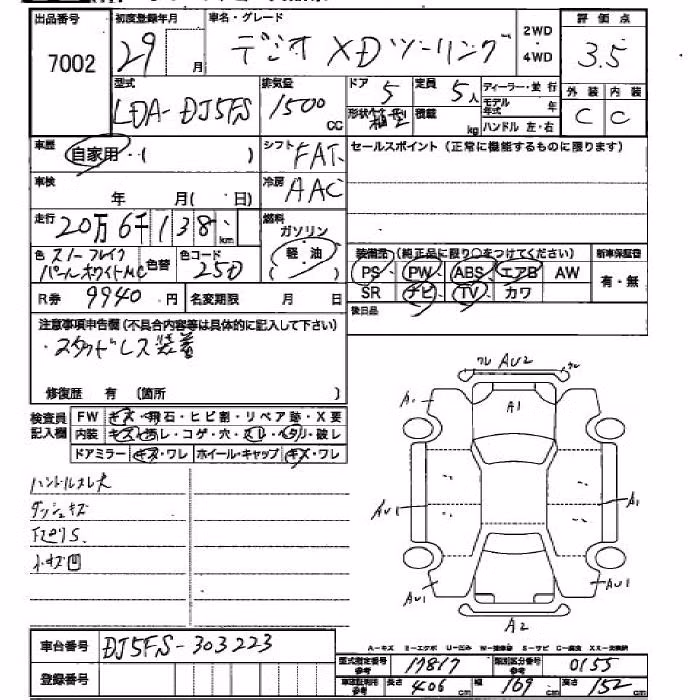 出品番号 初度登録年月 車名・グレード 2WD ・ 4WD 評価点
7002 29 月 デミオ XDツーリング 3.5
型式 排気量 ドア 5 定員 5人 ディーラー・並行 外装 内装
LDA-DJ5FS 1500 cc 形状 箱型 積載 kg モデル年式 年 C C
ハンドル 左・右
車歴 自家用・( ) シフト FAT セールスポイント(正常に機能するものに限ります)
車検 年 月( 日) 冷房 AAC
走行 20万6千138 km 燃料 ガソリン 軽・油 ( )
色 スノーフレイク パールホワイトMC 色替 色コード 25D
装備品 (純正品に限り○をつけてください) 新車保証書
PS PW ABS エアB AW 有・無
SR ナビ TV カワ
R券 9940円 名変期限 月 日 後日品
注意事項申告欄(不具合内容等は具体的に記入して下さい)
・スタッドレス装着
修復歴 有 〔箇所 〕
検査員記入欄 FW キズ・飛石・ヒビ割・リペア跡・X要
内装 キズ・汚レ・コゲ・穴・スレ・ヘタリ・破レ
ドアミラー キズ・ワレ ホイール・キャップ キズ・ワレ
ハンドルスレ大
ダッシュキズ
小キズ凹
ワレ AU2
A1
AU1 A1
AU1 AU1
A2
A-キズ E-エクボ U-凹み W-補修跡 S-サビ C-腐食 XX-交換済
車台番号 DJ5FS-303223
登録番号
型式指定番号 参考 17817 類別区分番号 参考 0155
車庫証明用 参考 長さ 406 cm 幅 169 cm 高さ 152 cm